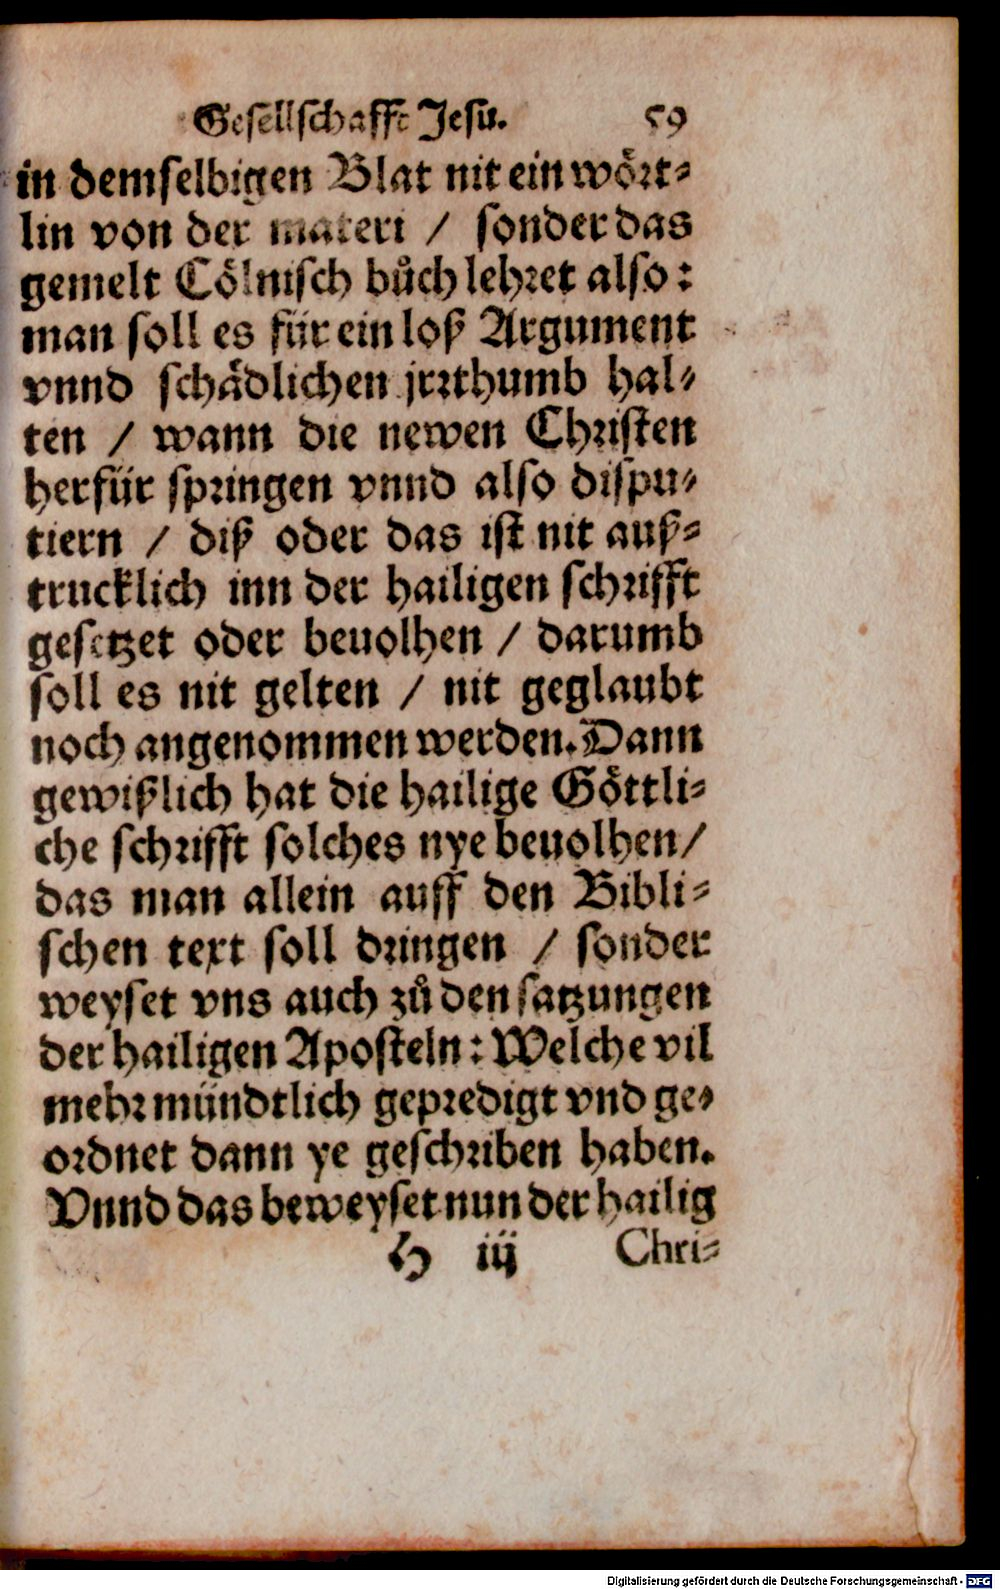 Gesellschafft Jesu. 59
in demselbigen Blat nit ein wört⸗
lin von der materi / sonder das
gemelt Cölnisch bůch lehret also:
man soll es für ein loß Argument
vnnd schädlichen jrrthumb hal⸗
ten / wann die newen Christen
herfür springen vnnd also dispu⸗
tiern / diß oder das ist nit auß⸗
trucklich inn der hailigen schrifft
gesetzet oder beuolhen / darumb
soll es nit gelten / nit geglaubt
noch angenommen werden. Dann
gewißlich hat die hailige Göttli⸗
che schrifft solches nye beuolhen /
das man allein auff den Bibli⸗
schen text soll dringen / sonder
weyset vns auch zů den satzungen
der hailigen Aposteln: Welche vil
mehr mündtlich gepredigt vnd ge⸗
ordnet dann ye geschriben haben.
Vnnd das beweyset nun der hailig
H iij Chri⸗
Digitalisierung gefördert durch die Deutsche Forschungsgemeinschaft - DFG